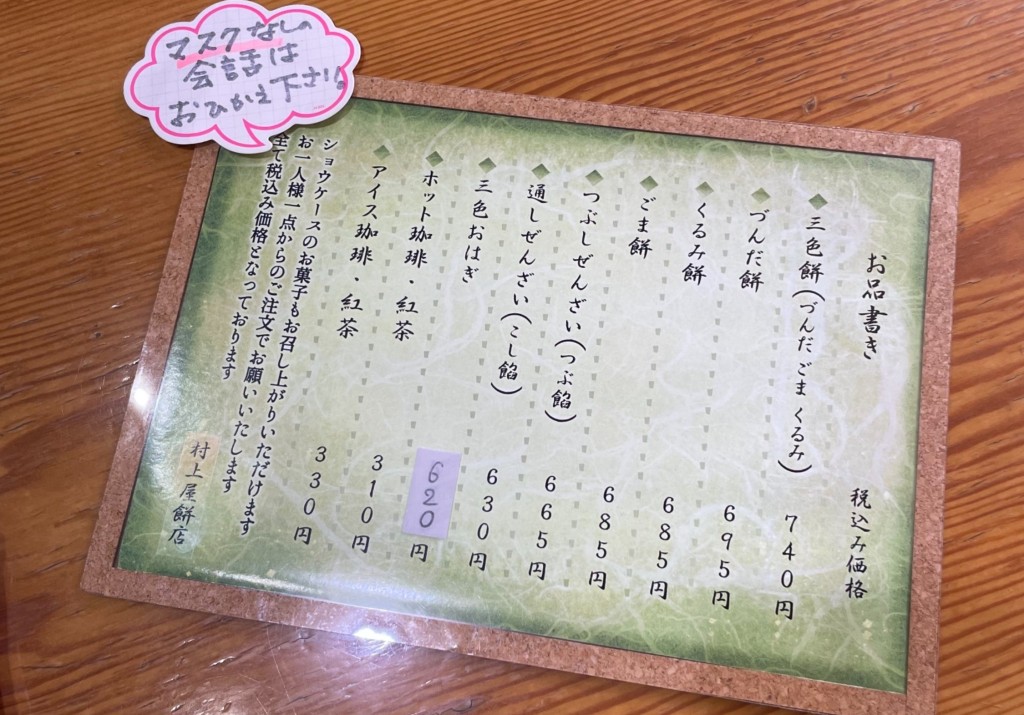 マスクなしの
会話は
おひかえ下さい。
お品書き 税込み価格
三色餅(づんだ ごま くるみ) 740円
づんだ餅 695円
くるみ餅 685円
ごま餅 685円
つぶしぜんざい(つぶ餡) 665円
通しぜんざい(こし餡) 630円
三色おはぎ 620円
ホット珈琲・紅茶 310円
アイス珈琲・紅茶 330円
ショウケースのお菓子もお召し上がりいただけます
お一人様一点からのご注文でお願いいたします
全て税込み価格となっております
村上屋餅店